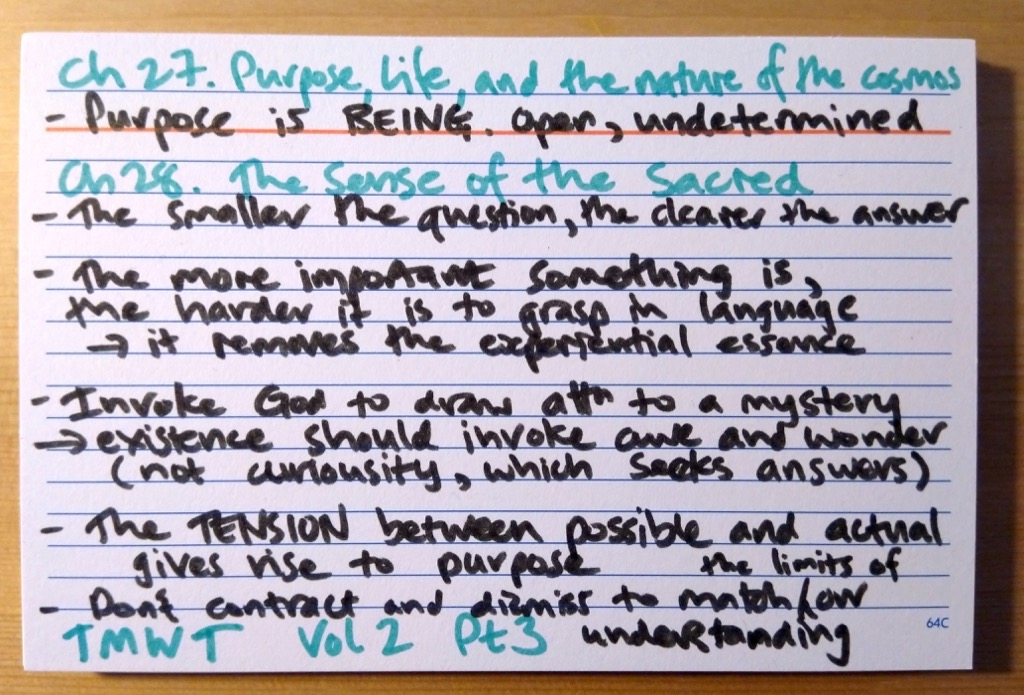 Ch 27. Purpose, Life, and the nature of the cosmos
- Purpose is BEING. open, undetermined
Ch 28. The Sense of the Sacred
- The smaller the question, the clearer the answer
- The more important something is,
the harder it is to grasp in language
→ it removes the experiential essence
- Invoke God to draw attn to a mystery
→ existence should invoke awe and wonder
(not curiousity, which seeks answers)
- The TENSION between possible and actual
gives rise to purpose
- Don't contract and dismiss to match the limits of our
understanding
TMWT Vol 2 Pt 3
64C